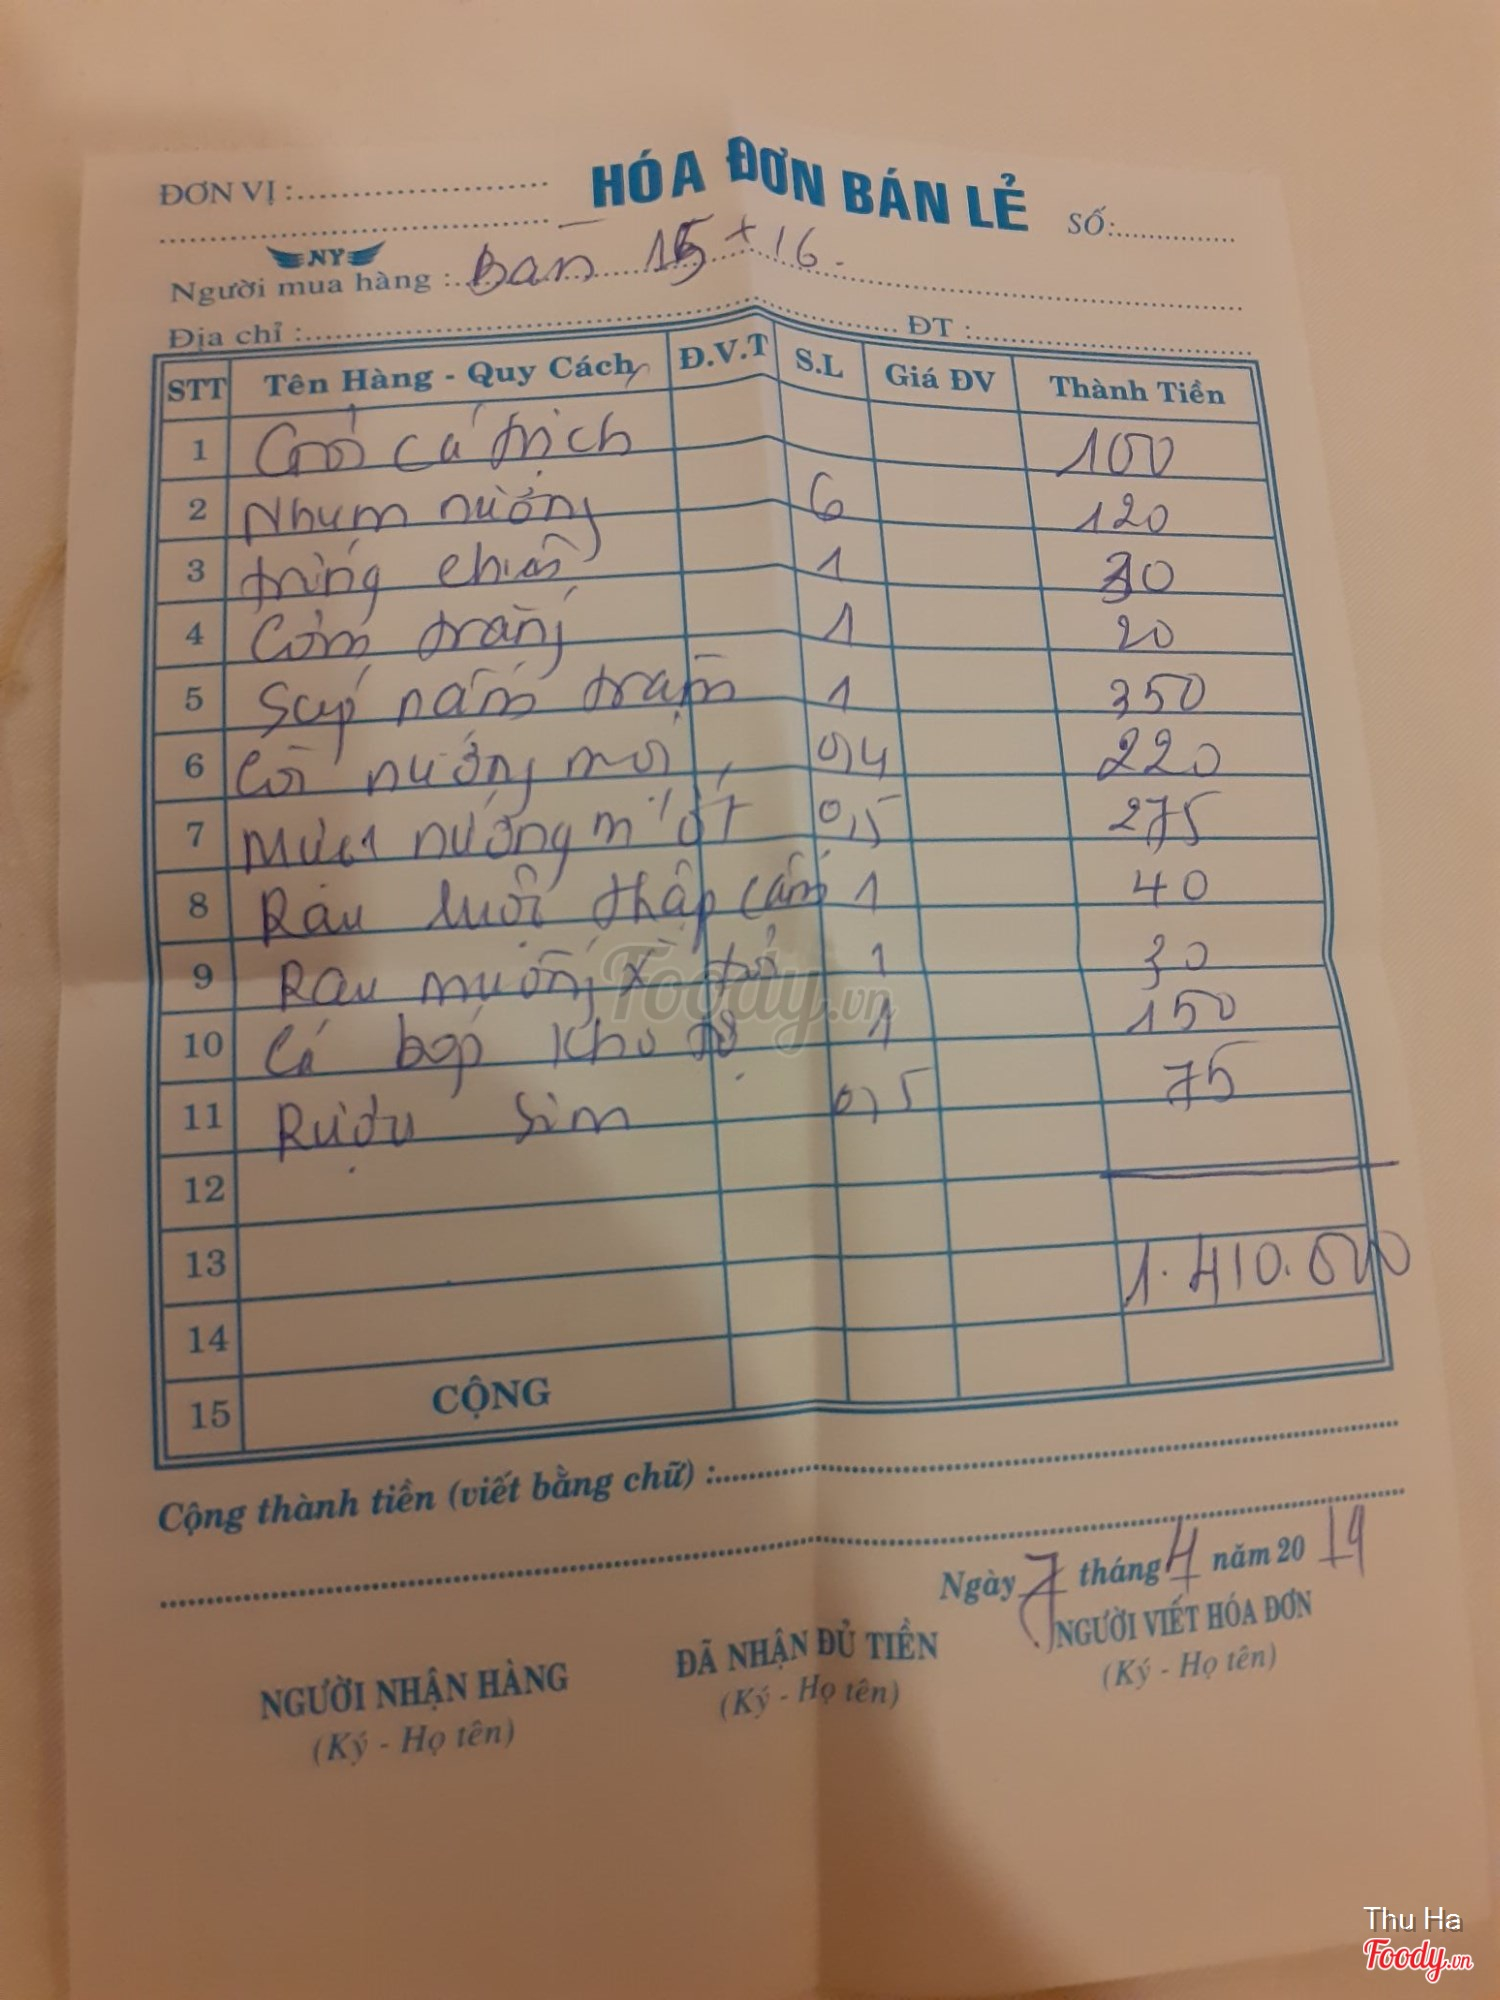 ĐƠN VỊ :
HÓA ĐƠN BÁN LẺ
SỐ:
NY
Người mua hàng : Bàn 15 + 16.
Địa chỉ : ĐT :
STT Tên Hàng - Quy Cách Đ.V.T S.L Giá ĐV Thành Tiền
1 Gỏi cá trích 100
2 Nhum nướng 6 120
3 trứng chiên 1 30
4 Cơm trắng 1 20
5 Súp nấm tràm 1 350
6 Còi nướng mọi 0,4 220
7 Mực nướng m ớt 0,5 275
8 Rau luộc thập cẩm 1 40
9 Rau muống x tỏi 1 30
10 Cá bớp kho tộ 1 150
11 Rượu Sim 0,5 75
12
13 1.410.000
14
15 CỘNG
Cộng thành tiền (viết bằng chữ) :
Ngày 7 tháng 4 năm 2019
NGƯỜI NHẬN HÀNG ĐÃ NHẬN ĐỦ TIỀN NGƯỜI VIẾT HÓA ĐƠN
(Ký - Họ tên) (Ký - Họ tên) (Ký - Họ tên)
Foody.vn
Thu Ha
Foody.vn